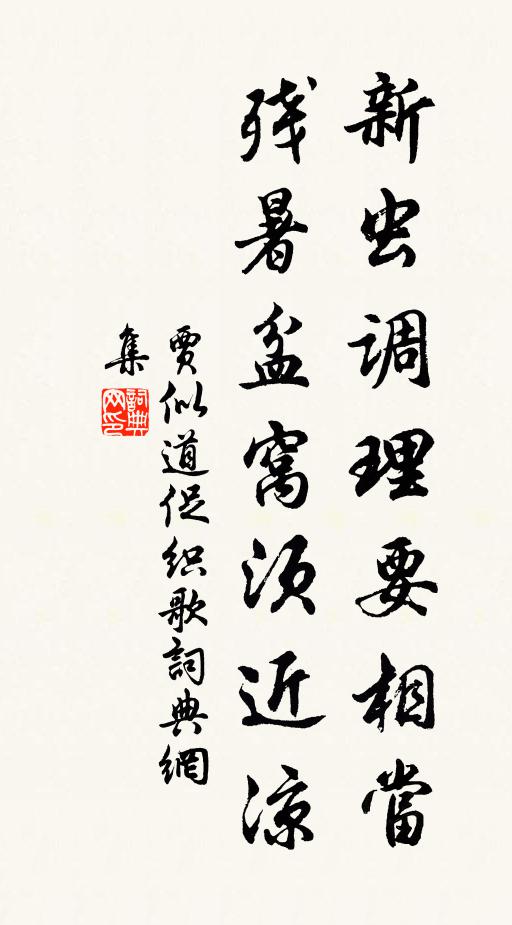 新虫调理要相當
残暑盆窝须近凉
賈似道促织歌詞典網
集
詞典網印